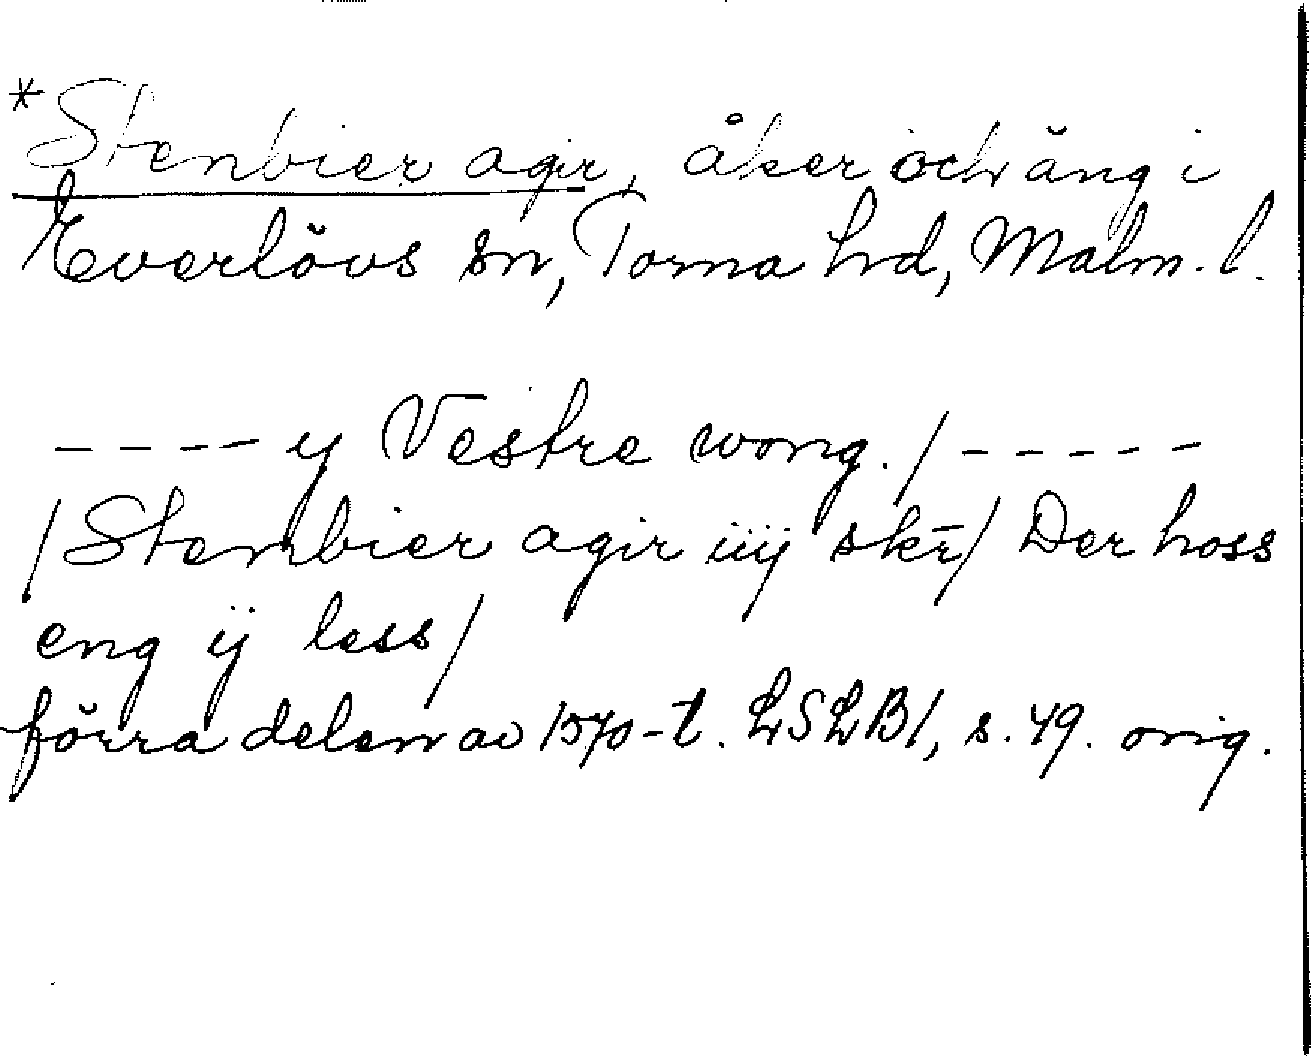 *Stenbier agir, åker och äng i
Everlövs sn, Torna hd, Malm. l.
---- y Vestre wong. / -----
/ Stenbier agir iiij skr̄ / Der hoss
eng ij less /
förra delen av 1570-t. LSLB1, s. 49. orig.